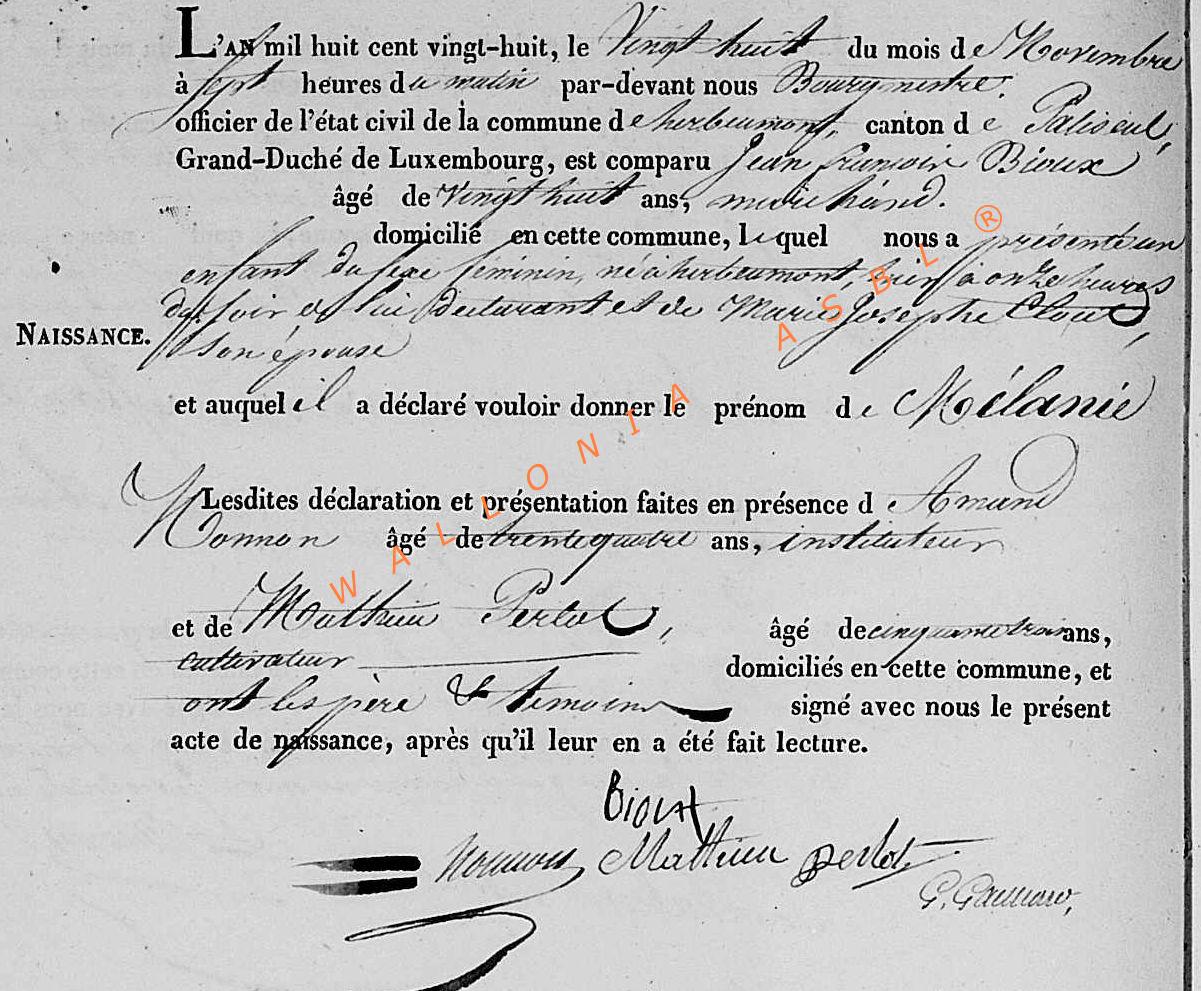 L'an mil huit cent vingt-huit, le Vingt huit du mois de Novembre
à sept heures du matin par-devant nous Bourgmestre,
officier de l'état civil de la commune de herbeumont, canton de Paliseul,
Grand-Duché de Luxembourg, est comparu Jean françois Bioux
âgé de Vingt huit ans, marchand.
domicilié en cette commune, lequel nous a présenté un
enfant du sexe féminin, né à herbeumont, hier à onze heures
du soir de lui déclarant et de Marie Josephe
NAISSANCE.
son épouse
et auquel il a déclaré vouloir donner le prénom de Mélanie
Lesdites déclaration et présentation faites en présence de Amand
Nonnon âgé de trente quatre ans, instituteur
et de Mathieu Perlot, âgé de cinquante trois ans,
cultivateur domiciliés en cette commune, et
ont les père & temoins signé avec nous le présent
acte de naissance, après qu'il leur en a été fait lecture.
Bioux
Nonnon Mathieu perlot
WALLONIA ASBL ®